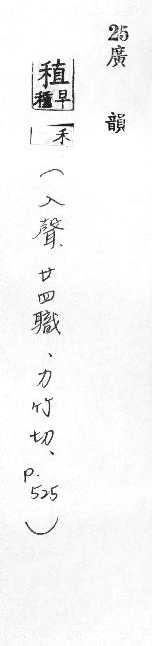 25廣韻
稙早種禾(入聲廿四職、力竹切、p.525)